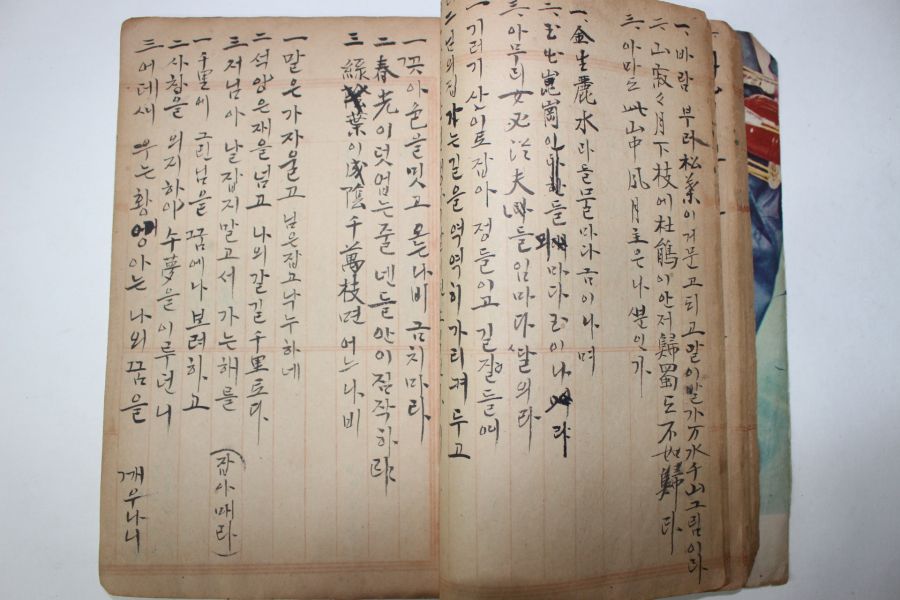 一、바람 부러 松葉이 거문고 되고 달이 발가 万水千山 그림이라
二、山寂々月下枝에 杜鵑이 안저 歸蜀도 不如歸라
三、아마도 此山中 風月主은 나 뿐인가
一、金生麗水라 들 물마다 금이 나며
二、玉出崑崗인 들 뫼마다 玉이 나 라
三、아무리 女必從夫 들 임마다 딸의랴
一 기러기 산이로 잡아 정들이고 길 질들에
二 님의 집 가는 길을 역역히 가리켜 두고
一 꽃아 色을 밋고 오는 나비 금치 마라
二 春光이 덧업는 줄 넨들 안이 짐작하랴
三 綠葉이 成陰千萬枝면 어느 나비
一 말은 가자 울고 님은 잡고 낙누하네
二 석양은 재을 넘고 나의 갈길 千里로다
三 저 님아 날 잡지 말고 서 가는 해를
(잡아매라)
一 千里에 그린 님을 꿈에나 보려하고
二 사창을 의지하야 수夢을 이루던니
三 어데새 우는 황앵아는 나의 꿈을
깨우나니